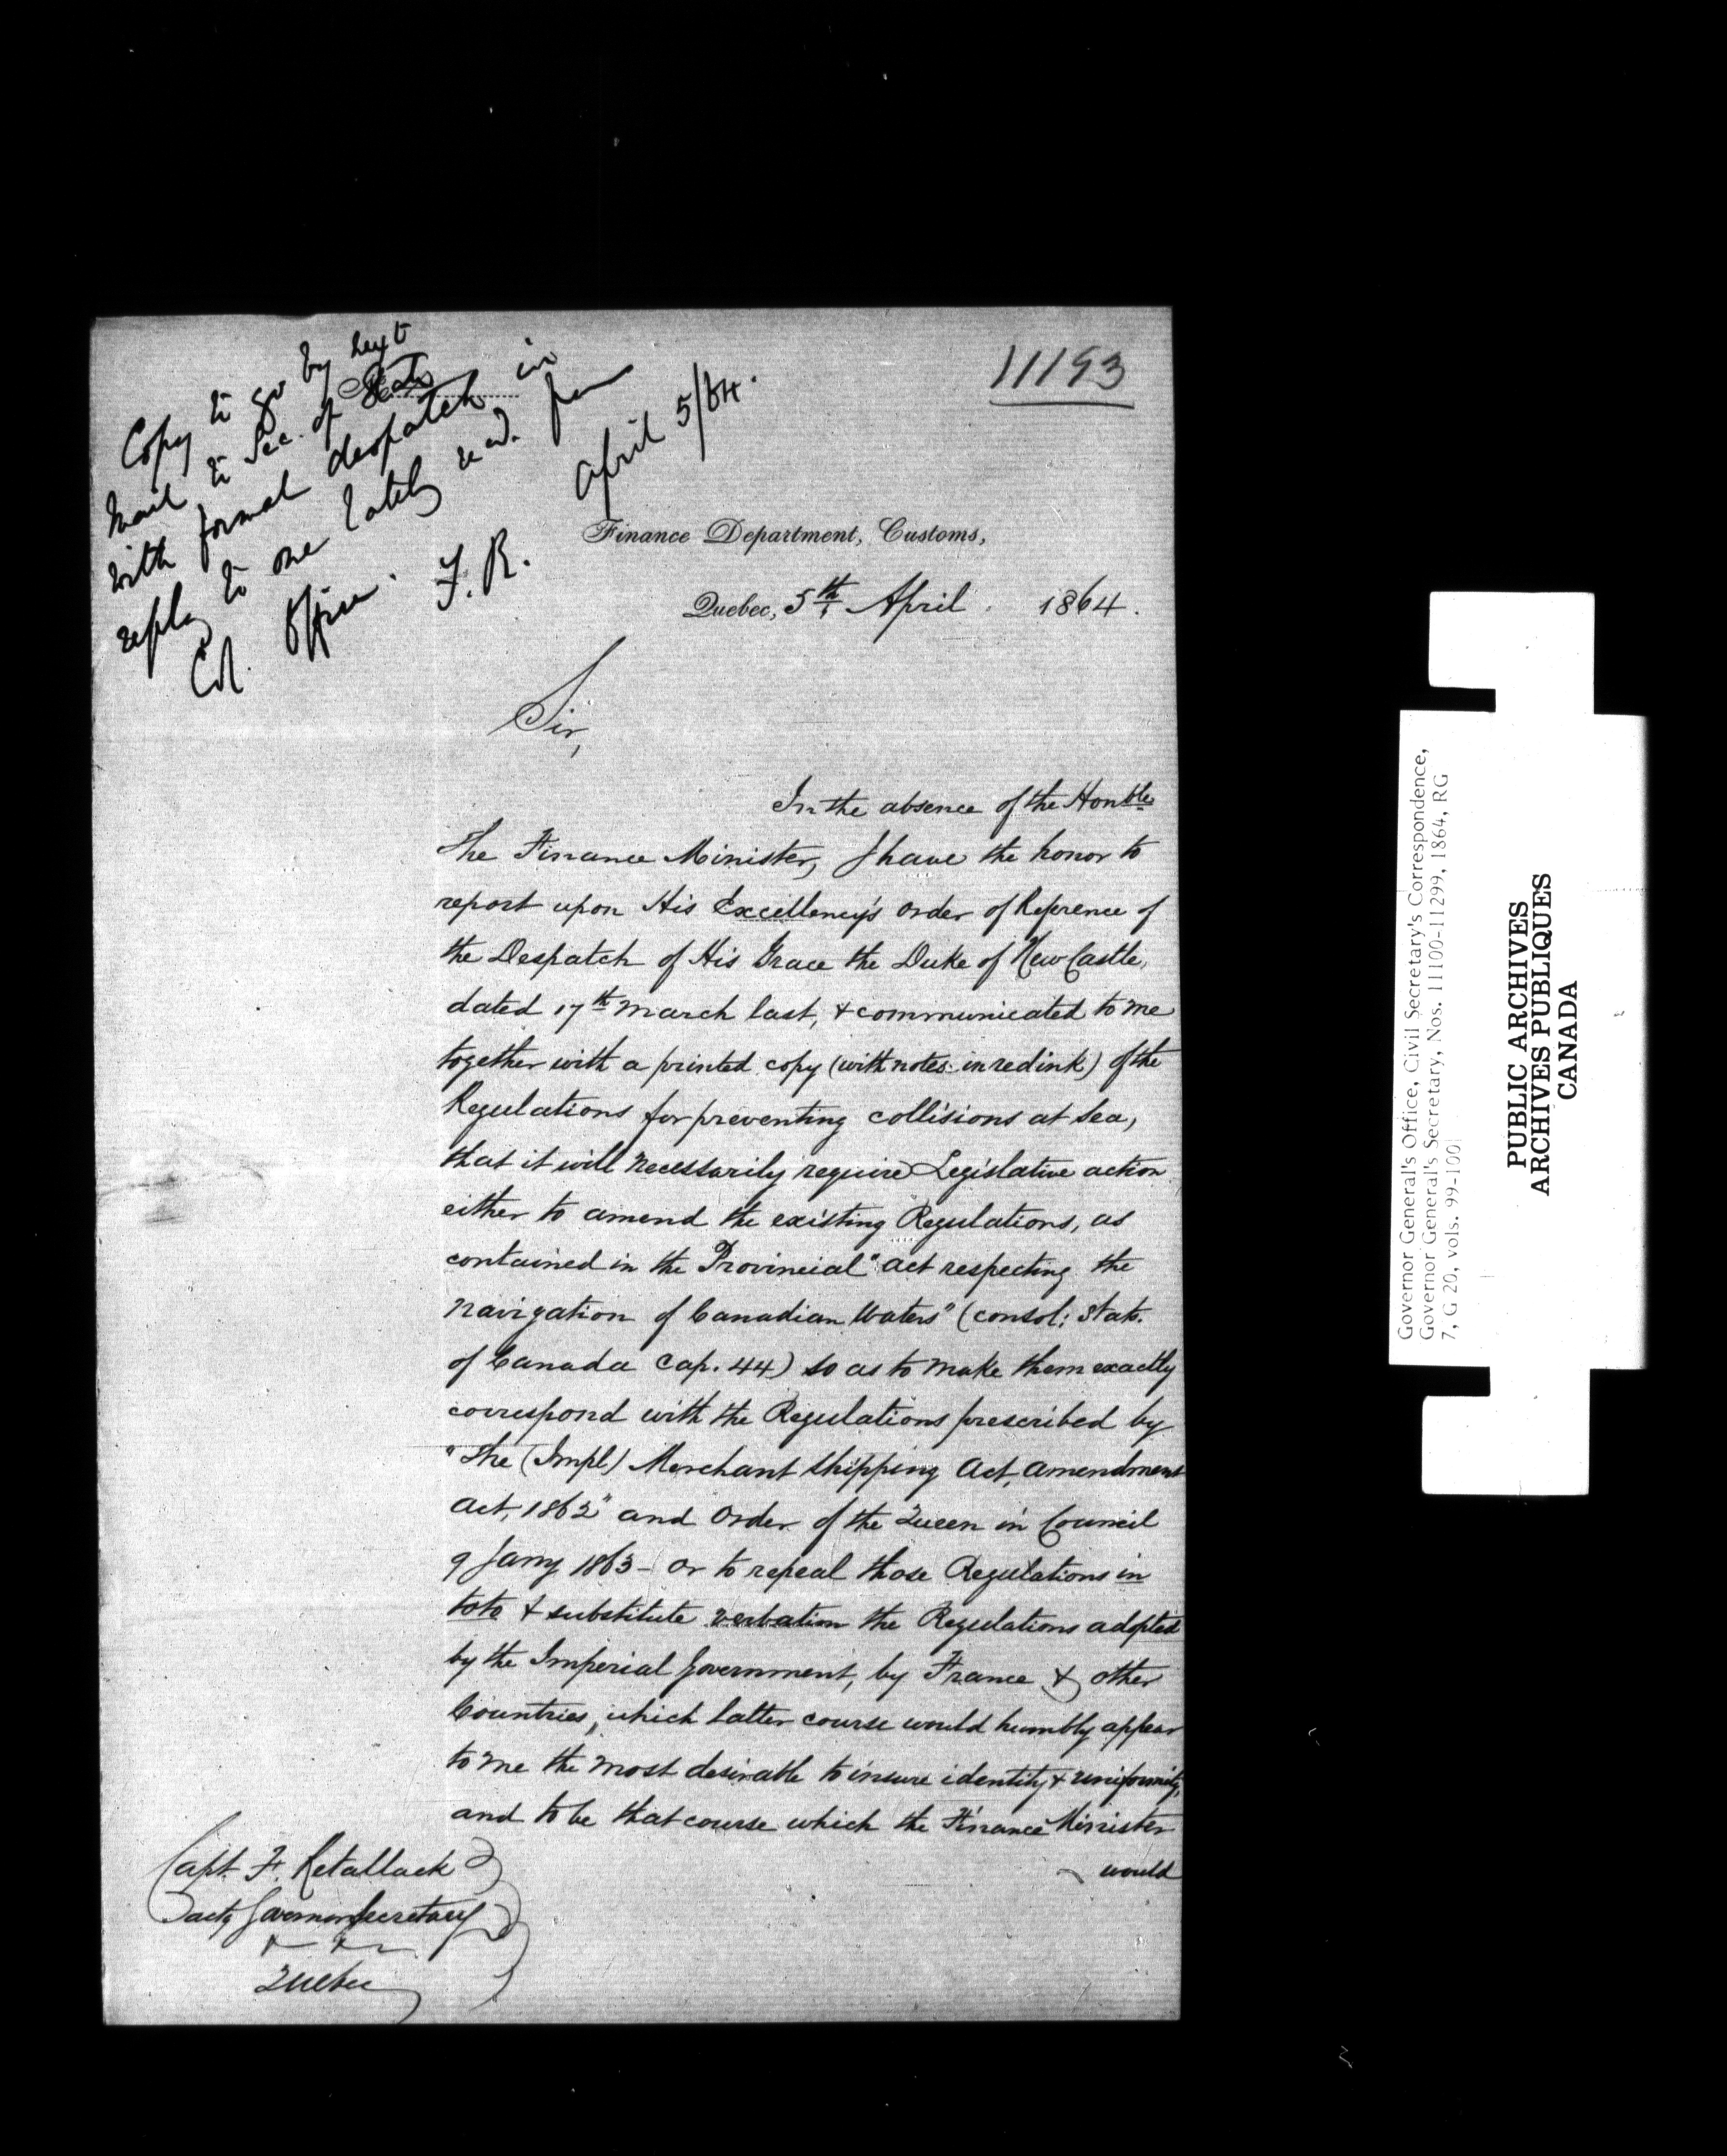 11193
Copy to go by next
Mail to Sec. of State
with formal despatch in
reply to one lately recd. from
Col. Office. F. R.
April 5/64.
Finance Department, Customs,
Quebec, 5th April 1864.
Sir,
In the absence of the Honble
The Finance Minister, I have the honor to
report upon His Excellency's order of Reference of
the Despatch of His Grace the Duke of NewCastle,
dated 17th March last, & communicated to me
together with a printed copy (with notes in red ink) of the
Regulations for preventing collisions at Sea,
that it will necessarily require Legislative action
either to amend the existing Regulations, as
contained in the Provincial "Act respecting the
Navigation of Canadian Waters" (Consol: Stats.
of Canada Cap. 44) so as to make them exactly
correspond with the Regulations prescribed by
"The (Impl) Merchant Shipping Act, Amendment
Act, 1862" and Order of the Queen in Council
9 Jany 1863 - or to repeal those Regulations in
toto & substitute verbatim the Regulations adopted
by the Imperial Government, by France & other
Countries, which latter course would humbly appear
to me the most desirable to insure identity & uniformity,
and to be that course which the Finance Minister
would
Capt. F. Retallack
Governors Secretary
Quebec
Governor General's Office, Civil Secretary's Correspondence,
Governor General's Secretary, Nos. 11100-11299, 1864, RG
7, G 20, vols. 99-100
PUBLIC ARCHIVES
ARCHIVES PUBLIQUES
CANADA